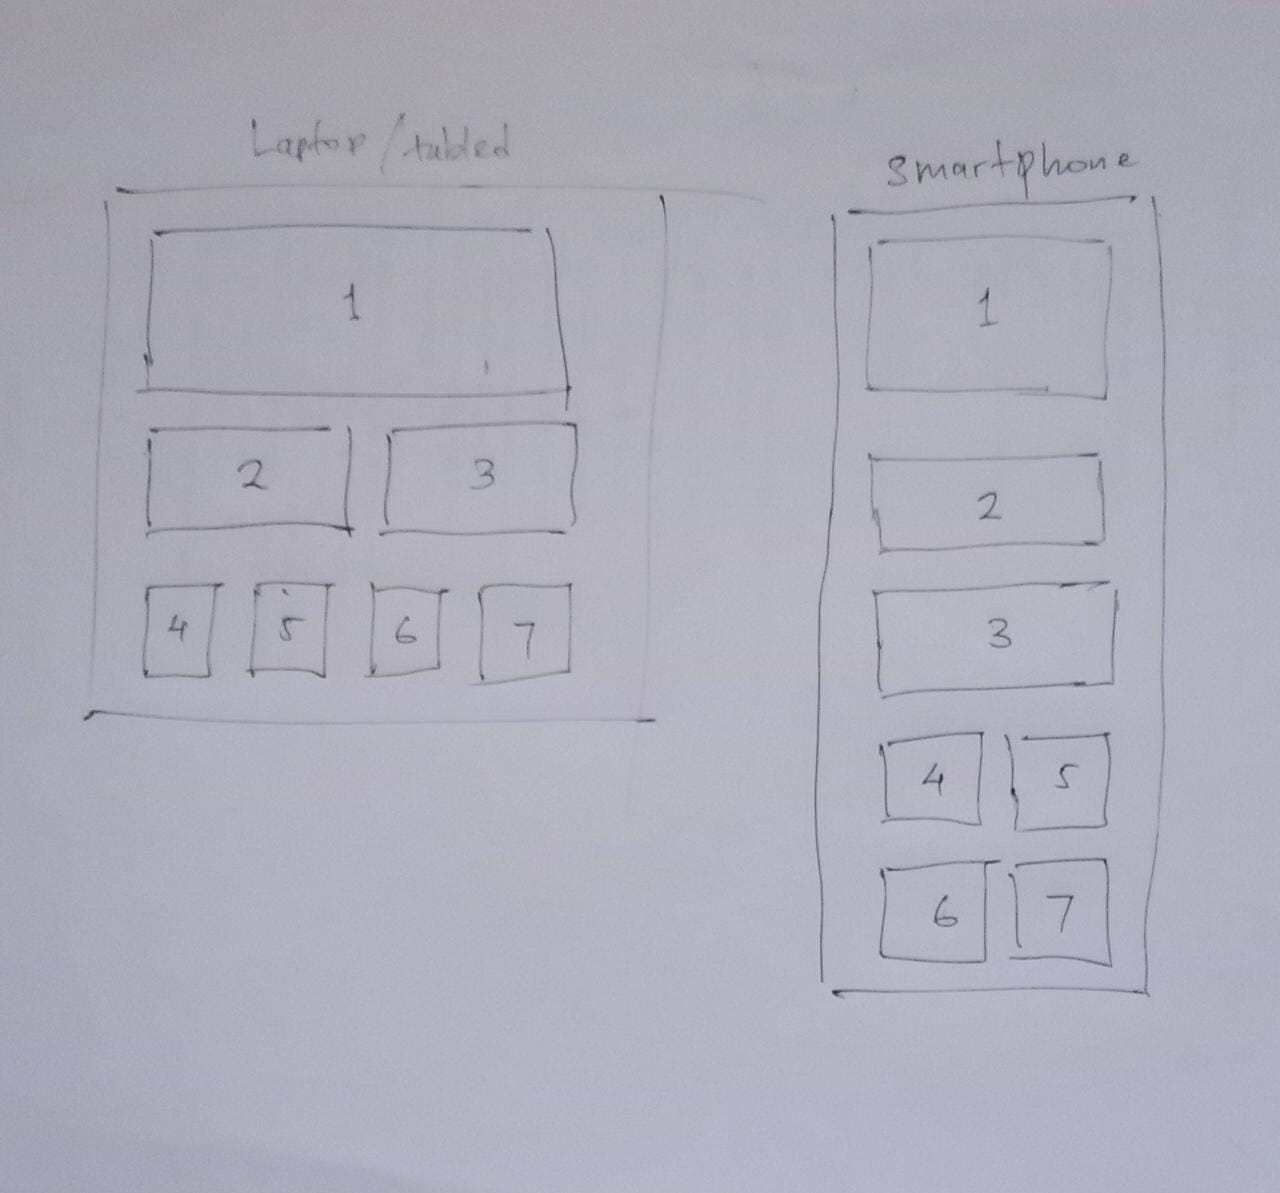 Laptop/tubled
1
2 3
4 5 6 7
smartphone
1
2
3
4 5
6 7